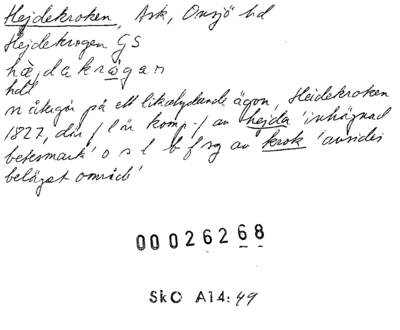 Hejdekroken, Ask, Onsjö hd
Hejdekrogen GS
hàjdakrωgan
hdl
n återgår på ett likalydande ägon, Heidekroken
1827, där fl är komp. f av hejda 'inhägnad
betesmark' o s l b f sg av krok 'avsides
beläget område'
00026268
SkO A14:49